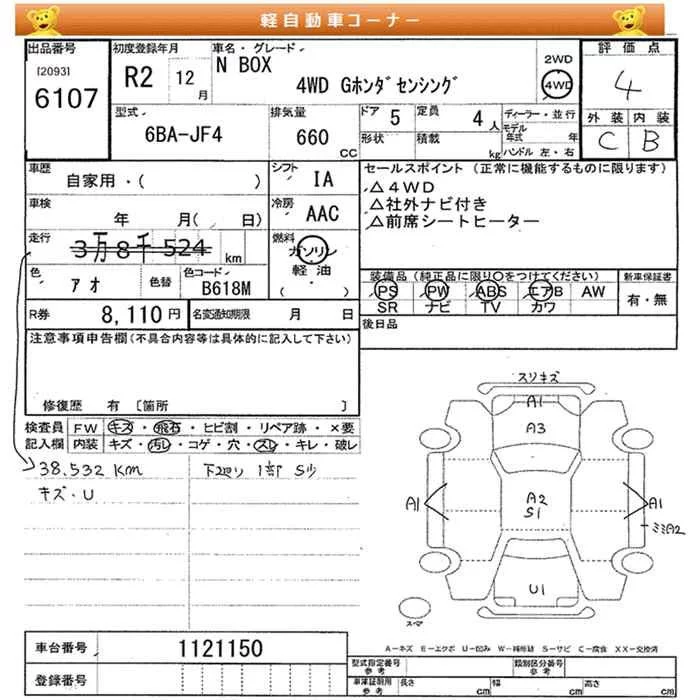 軽自動車コーナー
出品番号 初度登録年月 車名・グレード 評価点
[2093] 6107
R2 12 月
N BOX
4WD Gホンダセンシング
2WD
4WD
4
型式 6BA-JF4
排気量 660 CC
ドア 5 定員 4 人
形状 積載 kg
ディーラー・並行
モデル年式 年
ハンドル 左・右
外装 内装
C B
車歴 自家用・( )
シフト IA
車検 年 月( 日)
冷房 AAC
走行 3万8千524 km
燃料 ガソリン
軽油
( )
色 アオ 色替 色コード B618M
R券 8,110円 名変通知期限 月 日
セールスポイント(正常に機能するものに限ります)
△4WD
△社外ナビ付き
△前席シートヒーター
装備品(純正品に限り○をつけてください) 新車保証書
PS PW ABS エアB AW 有・無
SR ナビ TV カワ
後日品
注意事項申告欄(不具合内容等は具体的に記入して下さい)
修復歴 有 [箇所 ]
検査員 FW キズ・飛石・ヒビ割・リペア跡・×要
記入欄 内装 キズ・汚レ・コゲ・穴・スレ・キレ・破レ
38.532 Km 下廻り 1部 S少
キズ・U
スリキズ
A1
A3
A2
S1
A1
A1
ミミA2
U1
A-キズ E-エクボ U-凹み W-補修跡 S-サビ C-腐食 XX-交換済
車台番号 1121150
登録番号
型式指定番号 参考 類別区分番号 参考
車庫証明用 参考 長さ cm 幅 cm 高さ cm